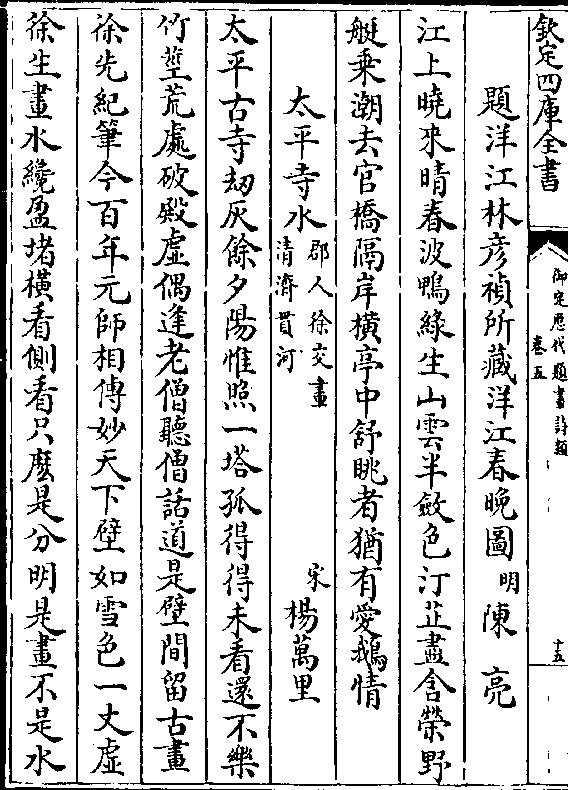 欽定四庫全書
御定歷代題畫詩類
卷五
十五
題洋江林彦禎所藏洋江春晚圖
明
陳亮
江上曉來晴春波鴨綠生山雲半斂色汀芷盡含榮野
艇乗潮去官橋隔岸橫亭中舒眺者猶有愛鵝情
太平寺水
郡人徐交畫
清濟貫河
宋
楊萬里
太平古寺刼灰餘夕陽惟照一塔孤得得未看還不樂
竹𦱤荒處破殿虛偶逢老僧聽僧話道是壁間留古畫
徐先紀筆今百年元師相傳妙天下壁如雪色一丈虛
徐生畫水纔盈堵橫看側看只麽是分明是畫不是水